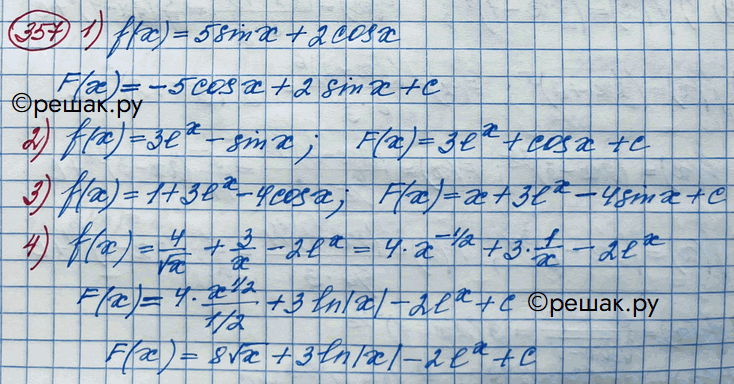 357 1) f(x) = 5sinx + 2cosx
F(x) = -5cosx + 2 sinx + c
©решак.ру
2) f(x) = 3e^x - sinx; F(x) = 3e^x + cosx + c
3) f(x) = 1 + 3e^x - 4cosx; F(x) = x + 3e^x - 4sinx + c
4) f(x) = 4/√x + 3/x - 2e^x = 4·x^(-1/2) + 3·1/x - 2e^x
F(x) = 4·x^(1/2)/(1/2) + 3 ln|x| - 2e^x + c ©решак.ру
F(x) = 8√x + 3ln|x| - 2e^x + c